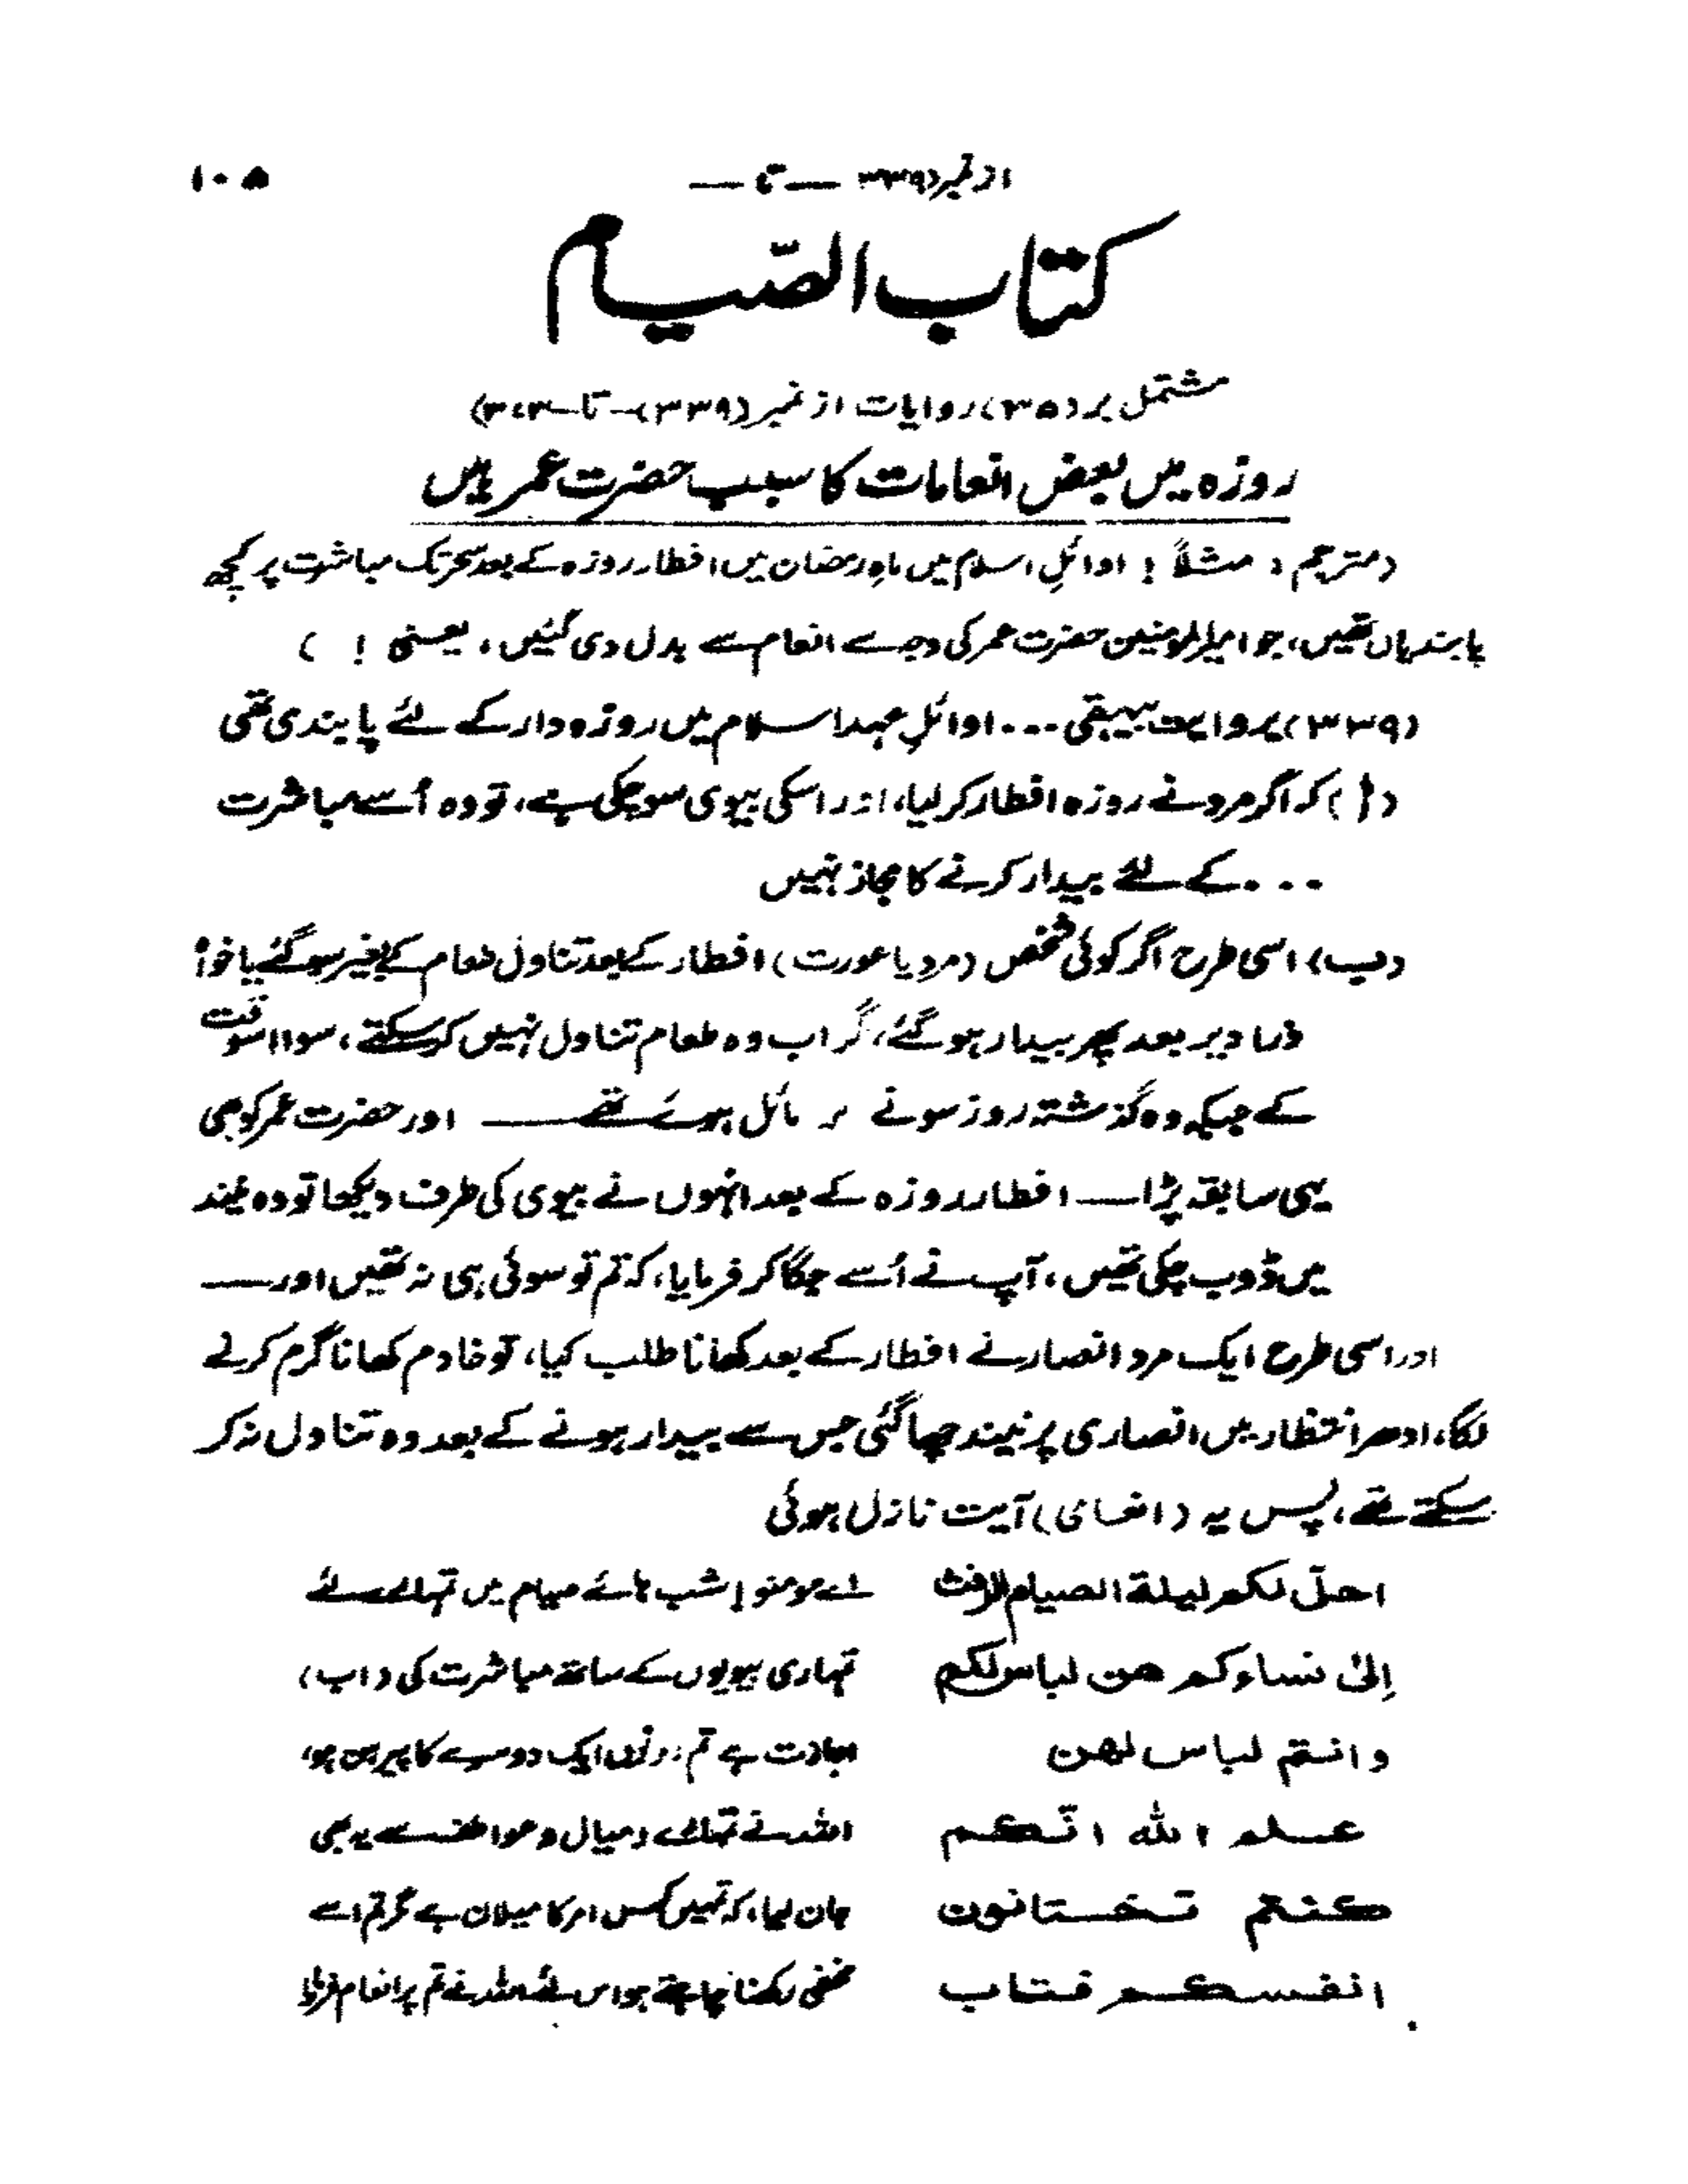 از نمبر (۳۳۹ — تا —
۱۰۵
کتاب الصّیام
مشتمل بر (۳۵) روایات از نمبر (۳۳۹) — تا — ۳۷۳)
روزہ میں بعض انعامات کا سبب حضرت عمر ہیں
(مترجم : مثلاً ! اوائلِ اسلام میں ماہِ رمضان میں افطار روزہ کے بعد سحر تک مباشرت پر کچھ
پابندیاں تھیں، جو امیرالمومنین حضرت عمر کی وجہ سے انعام سے بدل دی گئیں، یعنی ! )
(۳۳۹) بروایت بیہقی ... اوائلِ عہد اسلام میں روزہ دار کے لئے پابندی تھی
(ا) کہ اگر مرد نے روزہ افطار کر لیا، اور اسکی بیوی سو چکی ہے، تو وہ اُسے مباشرت
... کے لئے بیدار کرنے کا مجاز نہیں
(ب) اسی طرح اگر کوئی شخص (مرد یا عورت) افطار کے بعد تناول طعام کے بغیر سو گئے یا خواہ
ذرا دیر بعد پھر بیدار ہو گئے، گر اب وہ طعام تناول نہیں کر سکتے، سوا اسوقت
کے جبکہ وہ گذشتہ روز سونے پر مائل ہوئے تھے — اور حضرت عمر کو بھی
یہی سابقہ پڑا — افطار روزہ کے بعد انہوں نے بیوی کی طرف دیکھا تو وہ نیند
میں ڈوب چکی تھیں، آپ نے اُسے جگا کر فرمایا، کہ تم تو سوئی ہی نہ تھیں اور —
اور اسی طرح ایک مرد انصار نے افطار کے بعد کھانا طلب کیا، تو خادم کھانا گرم کرنے
لگا، ادھر انتظار میں انصاری پر نیند چھا گئی جس سے بیدار ہونے کے بعد وہ تناول نہ کر
سکتے تھے، پس یہ (انعامی) آیت نازل ہوئی
احلّ لکم لیلة الصیام الرفث
اے مومنو! شب ہائے صیام میں تمہارے لئے
اِلیٰ نساءکم ھن لباس لکم
تمہاری بیویوں کے ساتھ مباشرت کی (اب)
وانتم لباس لھن
اجازت ہے تم دونوں ایک دوسرے کا پیرہن ہو،
علم اللہ انّکم
اللہ نے تمہارے امیال و عواطف سے یہ بھی
کنتم تختانون
جان لیا، کہ تمہیں کس امر کا میلان ہے مگر تم اسے
انفسکم فتاب
مخفی رکھنا چاہتے ہو اس لئے اللہ نے تم پر انعام فرمایا